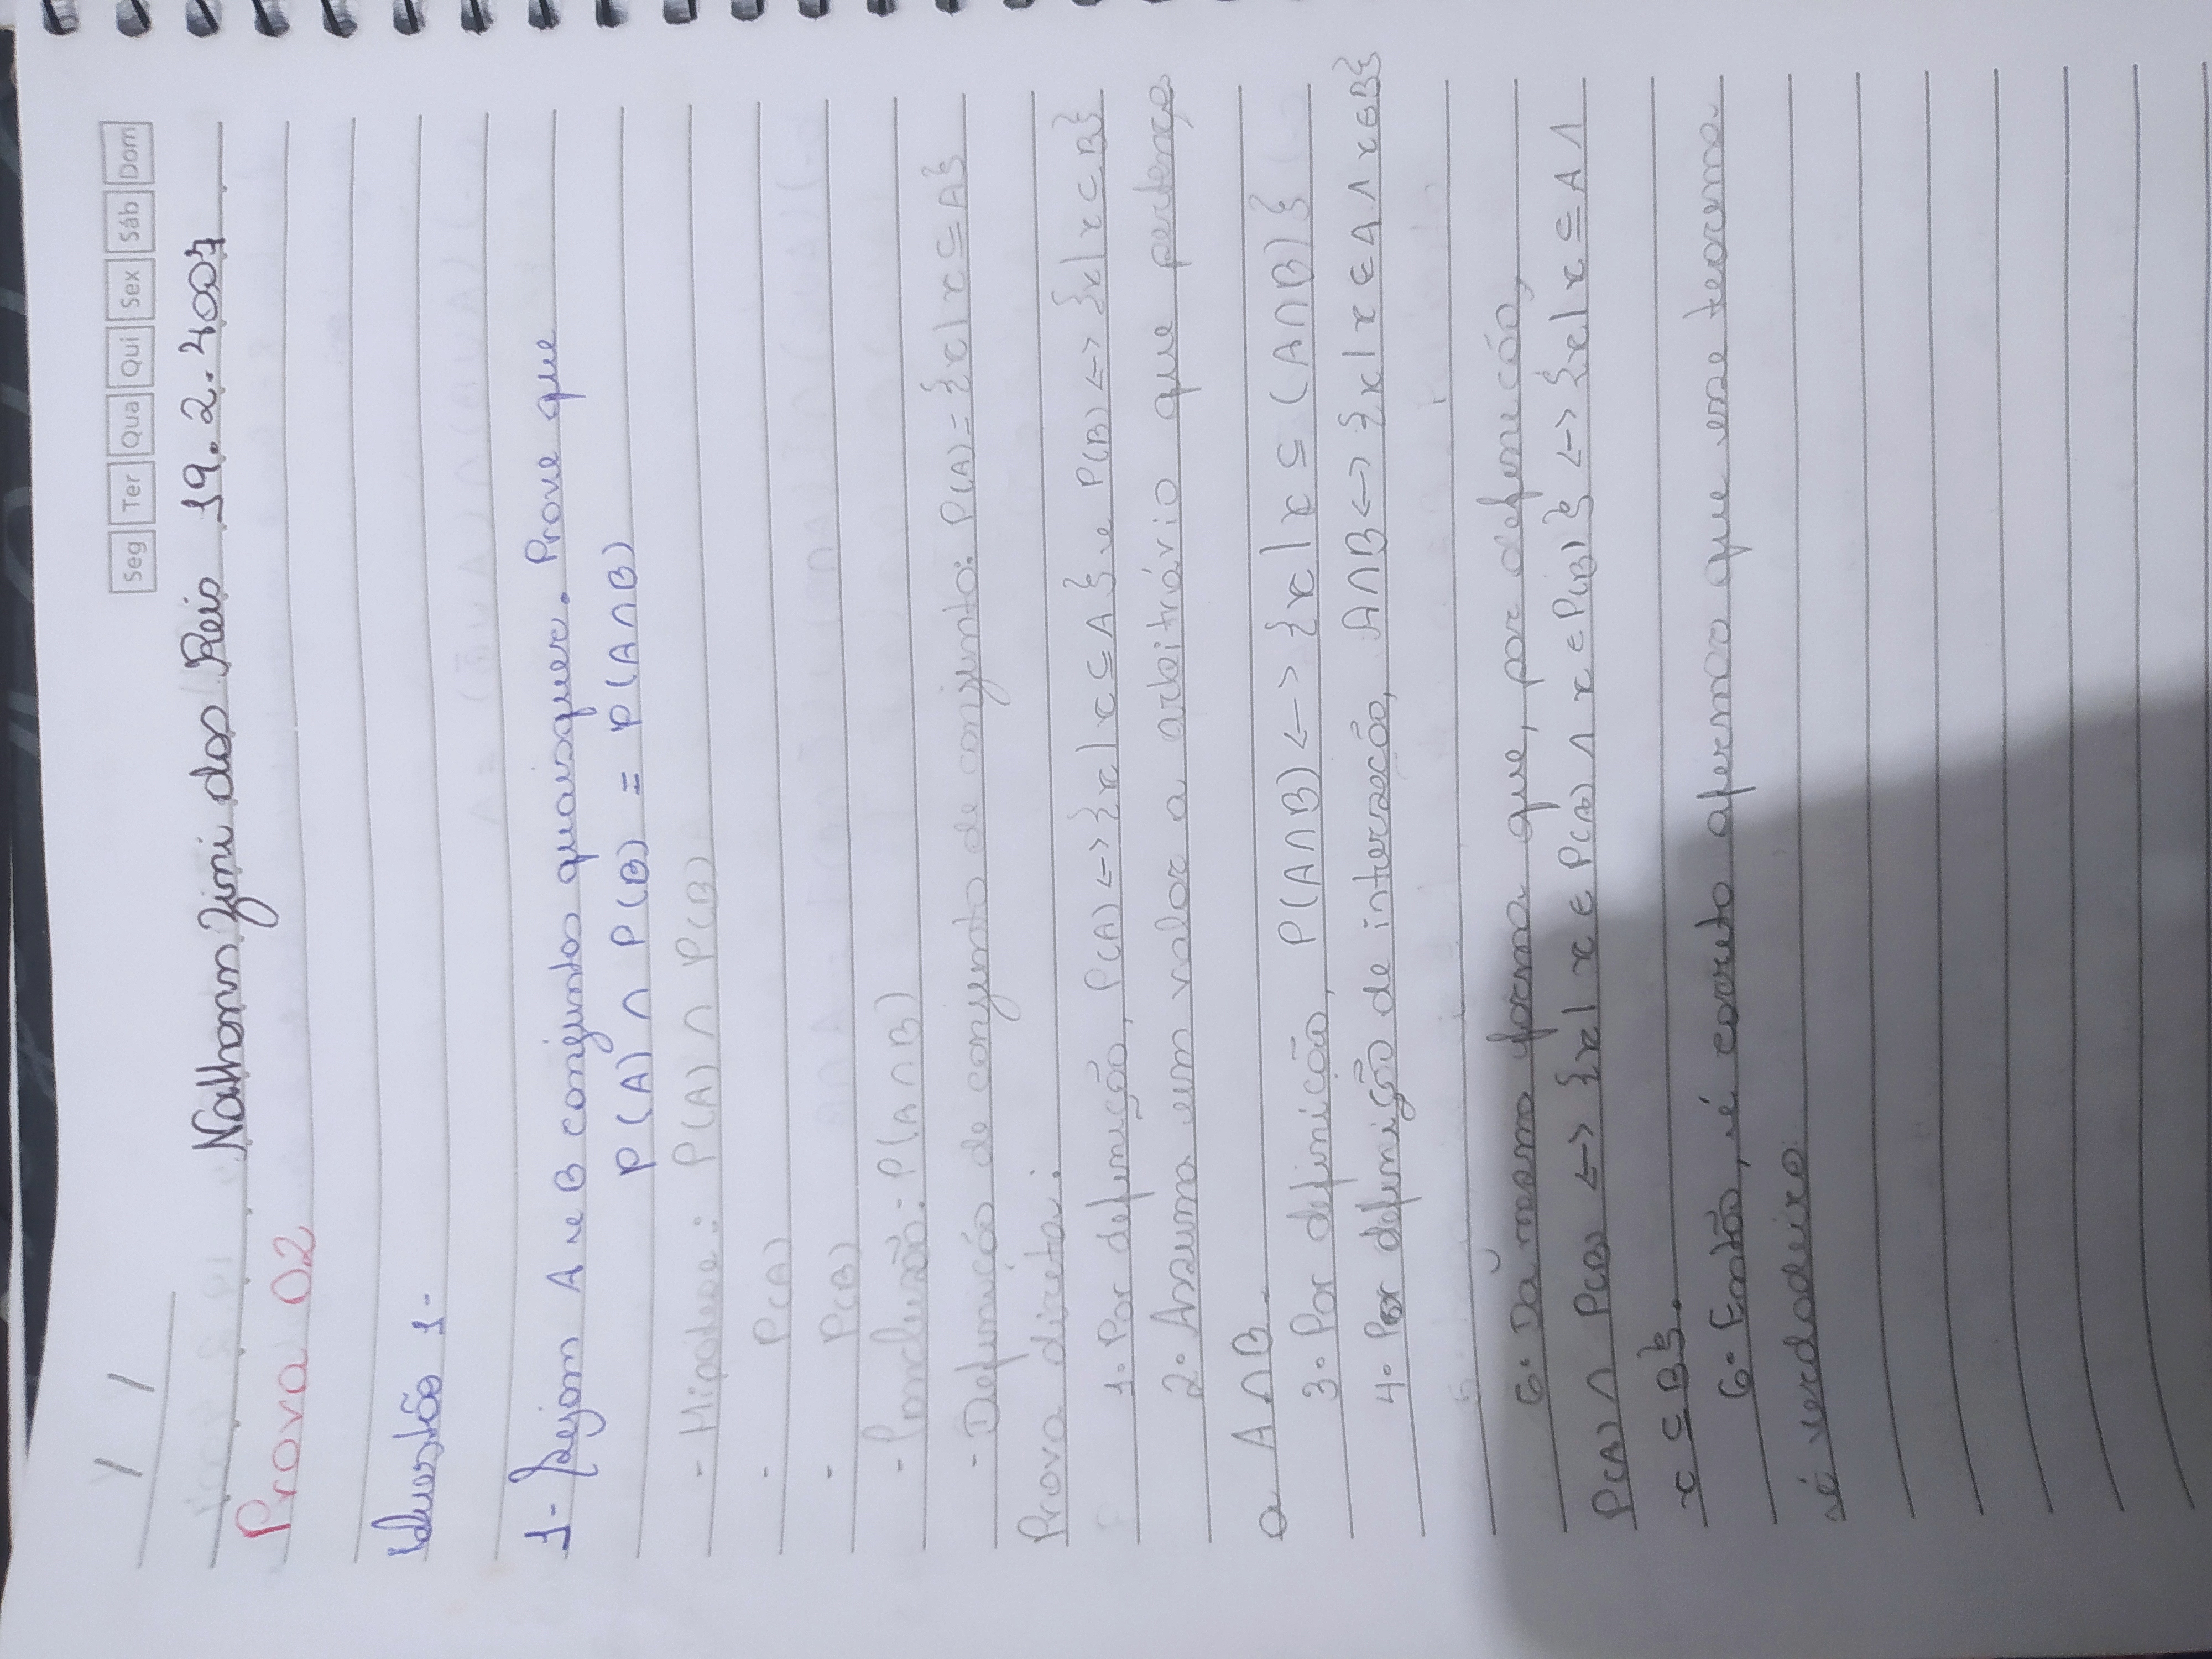 / /
Seg Ter Qua Qui Sex Sáb Dom
Nathann Zini dos Reis 19.2.4007
Prova 02
Questão 1-
1- Sejam A e B conjuntos quaisquer. Prove que
P(A) ∩ P(B) = P(A∩B)
- Hipótese: P(A) ∩ P(B)
- P(A)
- P(B)
- Conclusão: P(A∩B)
- Definição de conjunto de conjunto: P(A) = {x | x ⊆ A}
Prova direta:
1. Por definição, P(A) <-> {x | x ⊆ A} e P(B) <-> {x | x ⊆ B}
2. Assuma um valor a arbitrário que pertença
a A∩B.
3. Por definição, P(A∩B) <-> {x | x ⊆ (A∩B)}
4. Por definição de interseção, A∩B <-> {x | x ∈ A ∧ x ∈ B}
5
6. Da mesma forma que, por definição,
P(A) ∩ P(B) <-> {x | x ∈ P(A) ∧ x ∈ P(B)} <-> {x | x ⊆ A ∧
x ⊆ B}.
6. Então, é correto afirmar que esse teorema
é verdadeiro